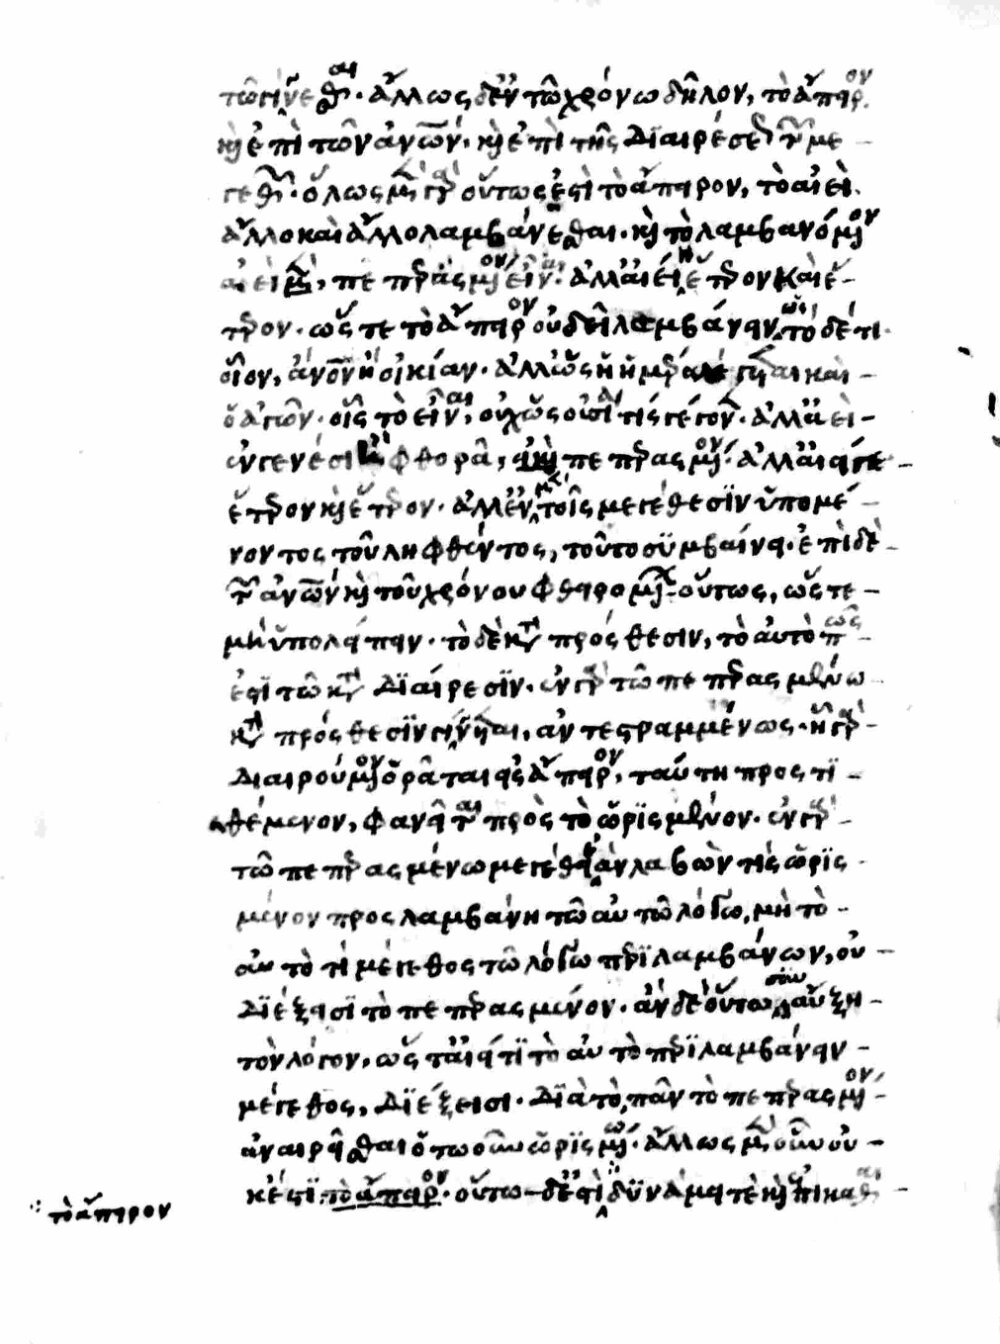 τῶ γίνεσθαι. ἄλλως δ' ἐν τῶ χρόνω δῆλον, τὸ ἄπειρον.
καὶ ἐπὶ τῶν ἀνων. καὶ ἐπὶ τῆς διαιρέσεως τῶν με-
γεθῶν. ὅλως μὲν γὰρ οὕτως ἐστὶ τὸ ἄπειρον, τὸ αἰεὶ.
ἄλλο καὶ ἄλλο λαμβάνεσθαι. καὶ τὸ λαμβανόμενον
αἰεὶ μὲν, πεπερασμένον εἶναι. ἀλλ' αἰεὶ ἕτερον καὶ ἕ-
τερον. ὥστε τὸ ἄπειρον οὐ δεῖ λαμβάνειν ὡς τόδέ τι.
οἷον, ἄνον ἢ οἰκίαν. ἀλλ' ὡς ἡ ἡμέρα λέγεται καὶ-
ὁ ἀγών. οἷς τὸ εἶναι, οὐχ ὡς οὐσία τίς γέγονεν. ἀλλ' αἰεὶ-
ἐν γενέσει ἢ φθορᾶ, εἰ καὶ πεπερασμένον. ἀλλ' αἰεί γε-
ἕτερον καὶ ἕτερον. ἀλλ' ἐν τοῖς μεγέθεσιν ὑπομέ-
νοντος τοῦ ληφθέντος, τοῦτο συμβαίνει. ἐπὶ δὲ-
τῶν ἀνων καὶ τοῦ χρόνου φθειρομένων. οὕτως, ὥστε-
μὴ ὑπολείπειν. τὸ δὲ κατὰ πρόσθεσιν, τὸ αὐτὸ πως-
ἐστὶ τῶ κατὰ διαίρεσιν. ἐν γὰρ τῶ πεπερασμένω
κατὰ πρόσθεσιν γίνεται, ἀντεστραμμένως. ἧ γὰρ-
διαιρούμενον ὁρᾶται εἰς ἄπειρον, ταύτη προστι-
θέμενον, φανεῖται πρὸς τὸ ὡρισμένον. ἐν γὰρ-
τῶ πεπερασμένω μεγέθει ἂν λαβών τις ὡρισ-
μένον προσλαμβάνη τῶ αὐτῶ λόγω, μὴ τὸ-
αὐτό τι μέγεθος τῶ λόγω περιλαμβάνων, οὐ-
διέξεισι τὸ πεπερασμένον. ἂν δὲ οὕτως αὔξη-
τὸν λόγον, ὥστ' αἰεί τι τὸ αὐτὸ περιλαμβάνειν-
μέγεθος, διέξεισι. διὰ τὸ, πᾶν τὸ πεπερασμένον-
ἀναιρεῖσθαι ὁτωοῦν ὡρισμένω. ἄλλως μὲν οὖν οὐ-
κ ἔστι. τὸ ἄπειρον. οὕτω δ' ἐστὶ δυνάμει τὲ καὶ ἐπὶ καθαι-
τὸ ἄπειρον